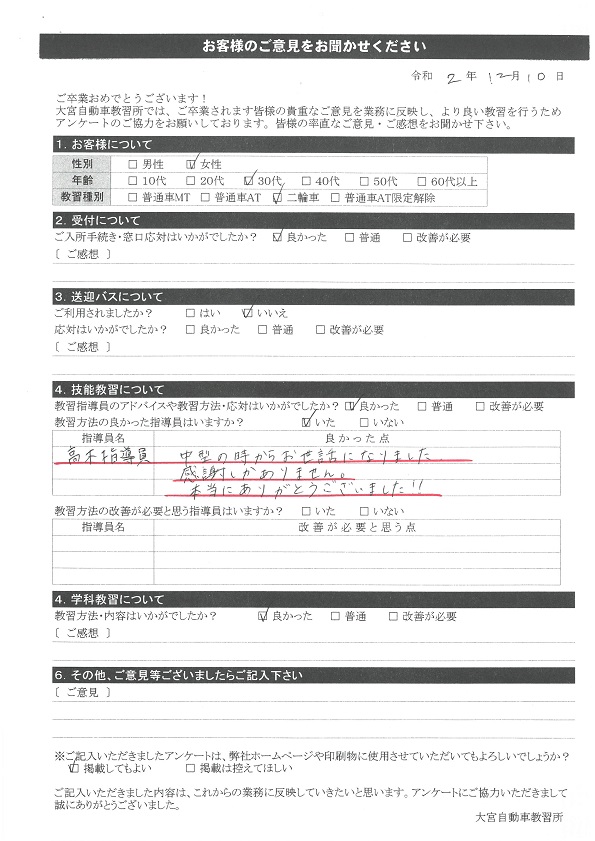 お客様のご意見をお聞かせください
令和 2 年 12 月 10 日
ご卒業おめでとうございます！
大宮自動車教習所では、ご卒業されます皆様の貴重なご意見を業務に反映し、より良い教習を行うため
アンケートのご協力をお願いしております。皆様の率直なご意見・ご感想をお聞かせ下さい。
1. お客様について
性別 □ 男性 ☑ 女性
年齢 □ 10代 □ 20代 ☑ 30代 □ 40代 □ 50代 □ 60代以上
教習種別 □ 普通車MT □ 普通車AT ☑ 二輪車 □ 普通車AT限定解除
2. 受付について
ご入所手続き・窓口応対はいかがでしたか？ ☑ 良かった □ 普通 □ 改善が必要
〔 ご感想 〕
3. 送迎バスについて
ご利用されましたか？ □ はい ☑ いいえ
応対はいかがでしたか？ □ 良かった □ 普通 □ 改善が必要
〔 ご感想 〕
4. 技能教習について
教習指導員のアドバイスや教習方法・応対はいかがでしたか？ ☑ 良かった □ 普通 □ 改善が必要
教習方法の良かった指導員はいますか？ ☑ いた □ いない
指導員名 良かった点
高木指導員 中型の時からお世話になりました。
感謝しかありません。
本当にありがとうございました!!
教習方法の改善が必要と思う指導員はいますか？ □ いた □ いない
指導員名 改善が必要と思う点
4. 学科教習について
教習方法・内容はいかがでしたか？ ☑ 良かった □ 普通 □ 改善が必要
〔 ご感想 〕
6. その他、ご意見等ございましたらご記入下さい
〔 ご意見 〕
※ご記入いただきましたアンケートは、弊社ホームページや印刷物に使用させていただいてもよろしいでしょうか？
☑ 掲載してもよい □ 掲載は控えてほしい
ご記入いただきました内容は、これからの業務に反映していきたいと思います。アンケートにご協力いただきまして
誠にありがとうございました。
大宮自動車教習所